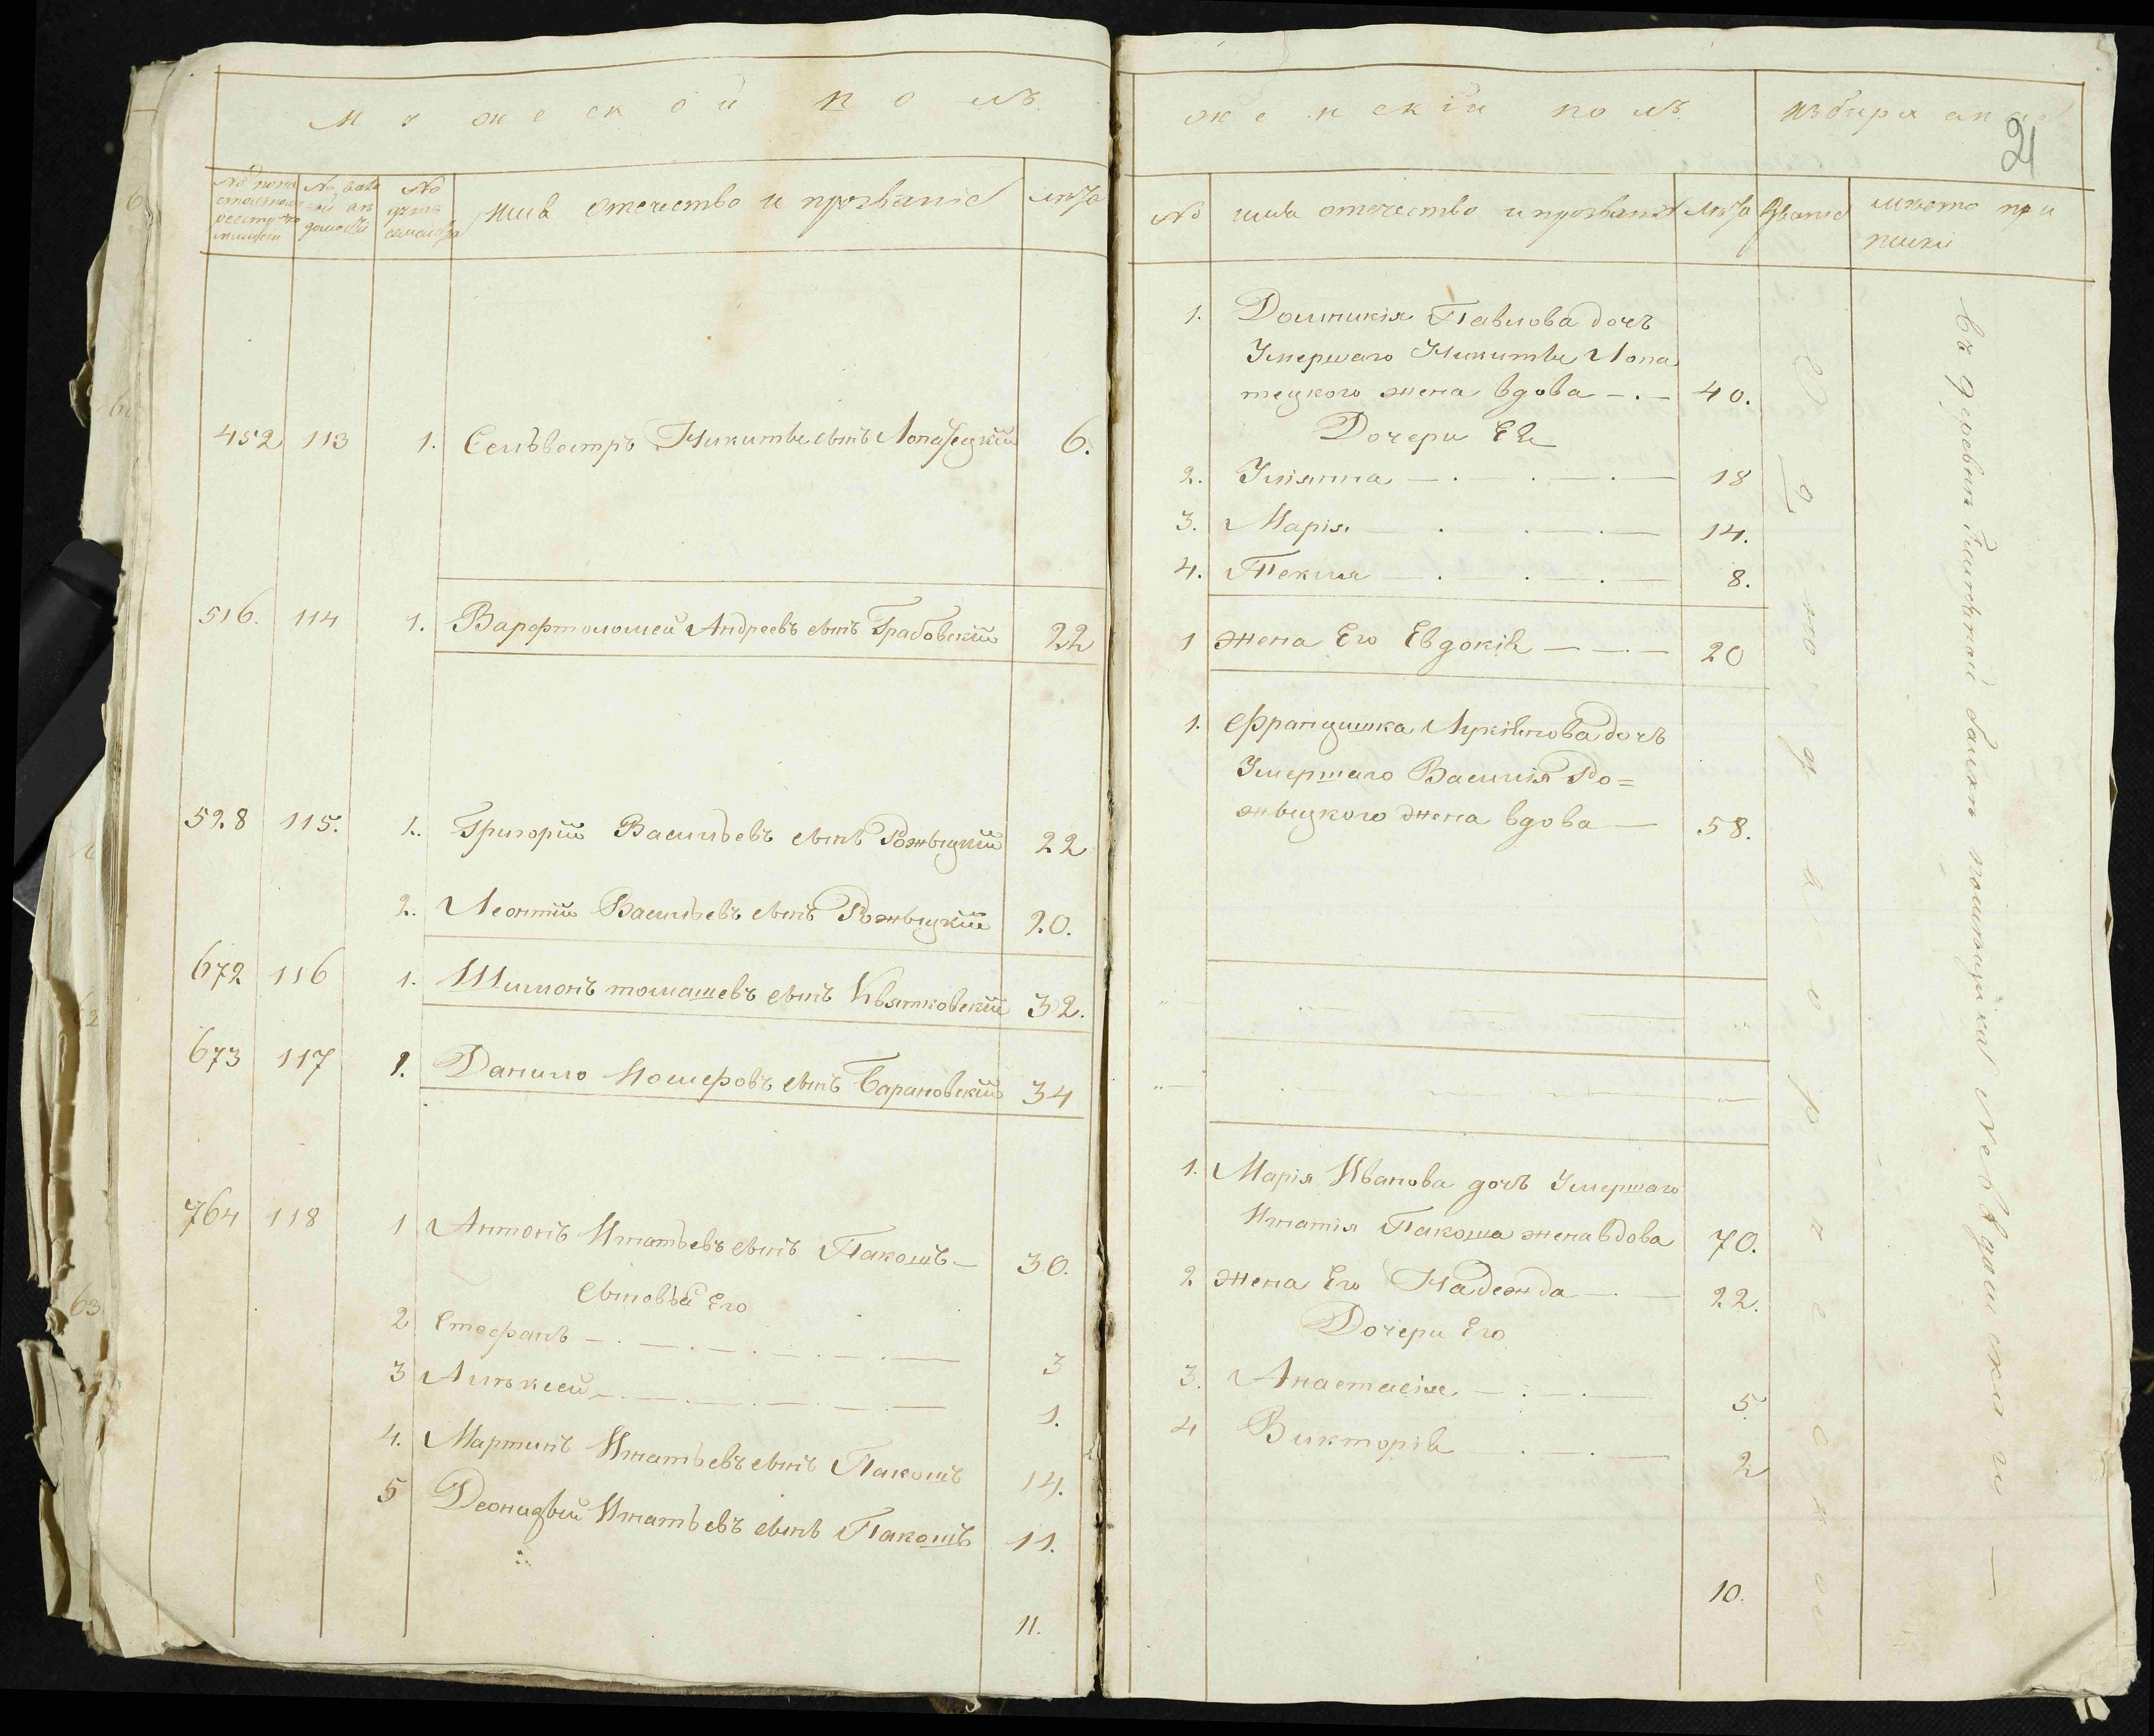 Мужеской полъ
№
Имя отечество и прозвание
лѣта
452 113 1. Сельвестръ Никиты сынъ Лопатецкій 6.
516. 114 1. Варфтоломей Андреевъ сынъ Грабовскій 22
528 115. 1. Григорій Васильевъ сынъ Рожыцкій 22
2. Леонтій Васильевъ сынъ Рожыцкій 20.
672 116 1. Шимонъ томашевъ сынъ Квятковскій 32.
673 117 1. Данило Іосифовъ сынъ Барановскій 34
764 118 1 Антонъ Игнатьевъ сынъ Пакошъ 30.
Сыновья Его
2 Стефанъ 3
3 Алѣксей 1.
4. Мартинъ Игнатьевъ сынъ Пакошъ 14.
5 Деонизій Игнатьевъ сынъ Пакошъ 11.
11.
женскій полъ
избираемое
21
№ имя отечество и прозвание лѣта Званіе мѣсто при
писки
1. Доминикія Павлова дочь
Умершаго Никиты Лопа
тецкого жена вдова 40.
Дочери Ея
2. Уліянна 18
3. Марія 14.
4. Текля 8.
1 жена Его Евдокія 20
1. Францишка Лукіянова дочь
Умершаго Василія Ро=
жыцкого жена вдова 58.
1. Марія Иванова дочь Умершаго
Игнатія Пакоша жена вдова 70.
2 жена Его Надежда 22.
Дочери Его
3. Анастасія 5.
4 Викторія 2
10.
Однодворческое
въ деревни помѣщика